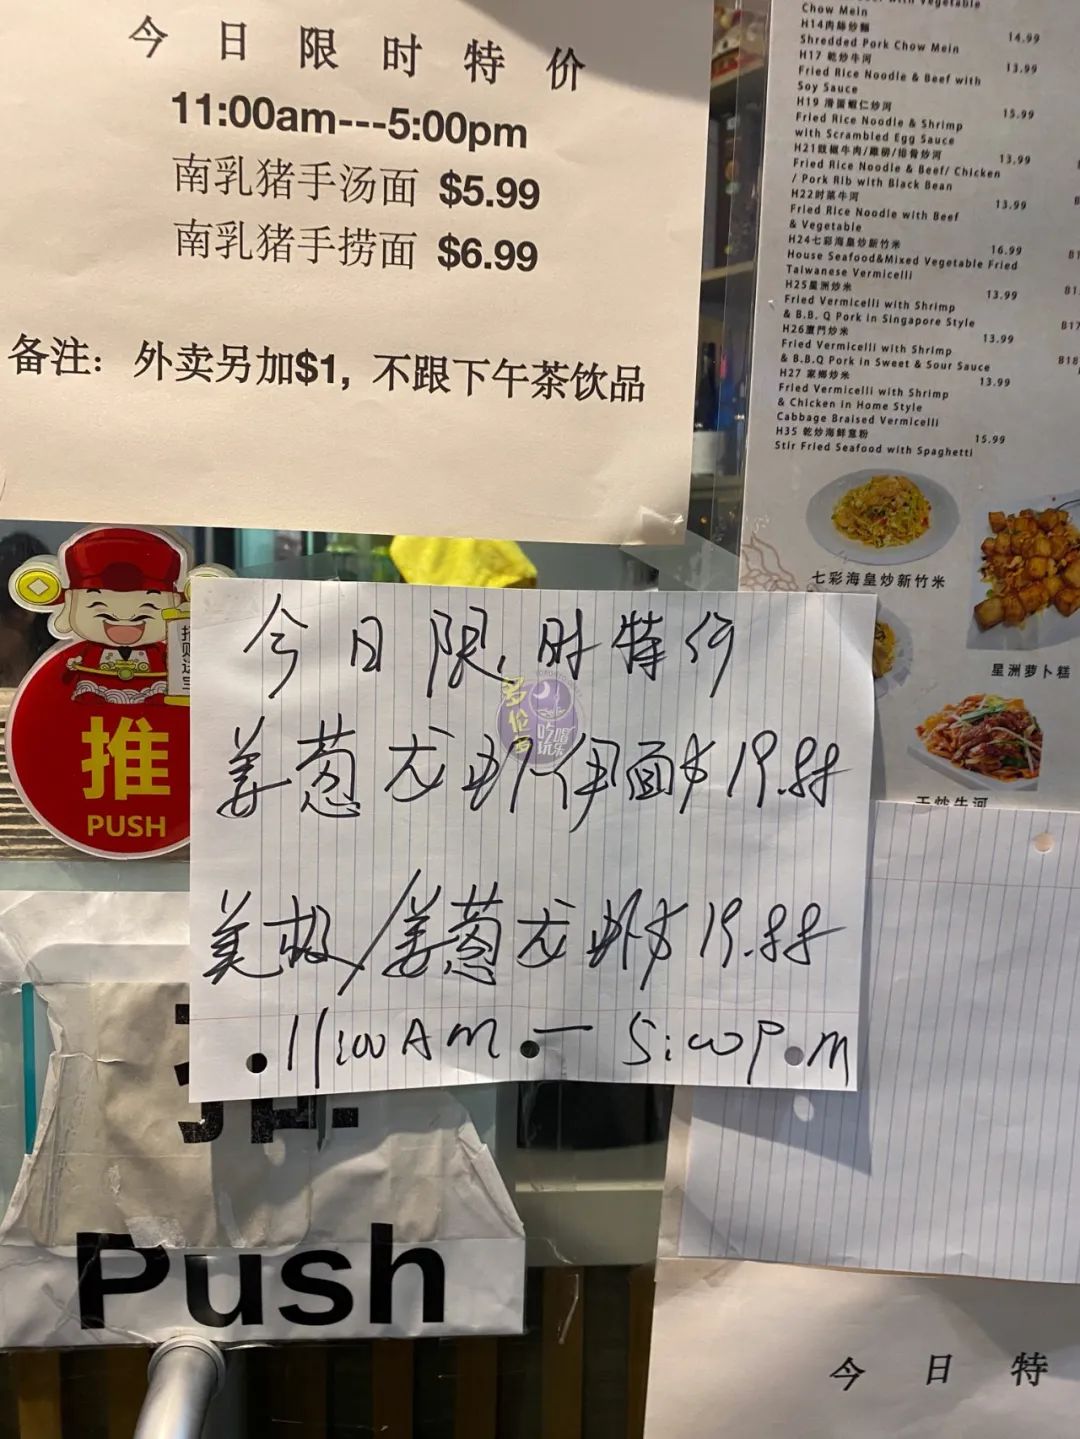 今日限时特价
11:00am---5:00pm
南乳猪手汤面 $5.99
南乳猪手捞面 $6.99
备注：外卖另加$1，不跟下午茶饮品
with Vegetable
Chow Mein
H14肉絲炒麵 14.99
Shredded Pork Chow Mein
H17 乾炒牛河 13.99
Fried Rice Noodle & Beef with
Soy Sauce
H19 滑蛋蝦仁炒河 15.99
Fried Rice Noodle & Shrimp
with Scrambled Egg Sauce
H21豉椒牛肉/雞柳/排骨炒河 13.99
Fried Rice Noodle & Beef/ Chicken
/ Pork Rib with Black Bean
H22时菜牛河 13.99
Fried Rice Noodle with Beef
& Vegetable
H24七彩海皇炒新竹米 16.99
House Seafood&Mixed Vegetable Fried
Taiwanese Vermicelli
H25星洲炒米 13.99
Fried Vermicelli with Shrimp
& B.B. Q Pork in Singapore Style
H26廈門炒米 13.99
Fried Vermicelli with Shrimp
& B.B.Q Pork in Sweet & Sour Sauce
H27 家鄉炒米 13.99
Fried Vermicelli with Shrimp
& Chicken in Home Style
Cabbage Braised Vermicelli
H35 乾炒海鮮意粉 15.99
Stir Fried Seafood with Spaghetti
B17
B18
七彩海皇炒新竹米
星洲萝卜糕
干炒牛河
推
PUSH
今日限时特价
姜葱龙虾伊面$19.88
美极/姜葱龙虾$19.88
11:00AM — 5:00P.m
多伦多
吃喝玩乐
Push
今日特